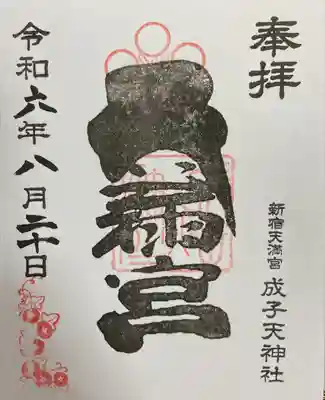 奉拝
新宿天満宮 成子天神社
天満宮
令和六年八月二十日